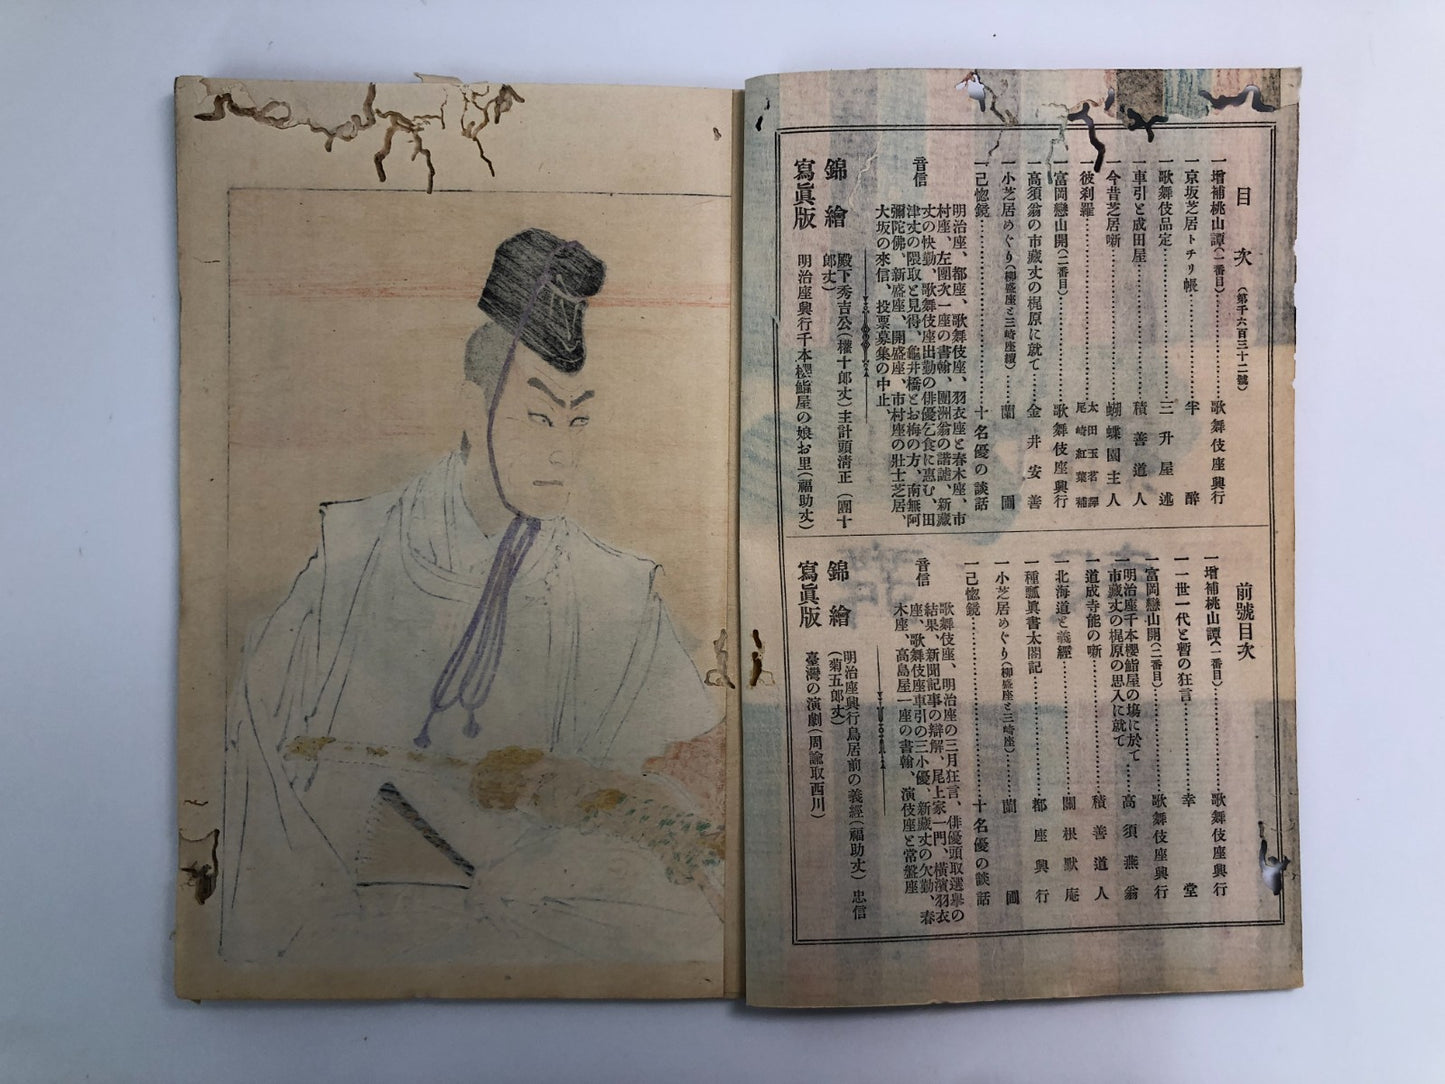 目次（第千六百三十二號）
一增補桃山譚（一番目）…………歌舞伎座興行
一京坂芝居トチリ帳…………半醉
一歌舞伎品定…………三升屋述
一車引と成田屋…………積善道人
一今昔芝居噺…………蝴蝶園主人
一彼刹羅…………太田玉茗譯 尾崎紅葉補
一富岡戀山開（二番目）…………歌舞伎座興行
一高須翁の市藏丈の梶原に就て…………金井安善
一小芝居めぐり（柳盛座と三崎座續）……蘭圃
一己惚鏡…………十名優の談話
音信
明治座、都座、歌舞伎座、羽衣座と春木座、市
村座、左團次一座の書翰、團洲翁の諧謔、新藏
丈の快勤、歌舞伎座出勤の俳優乞食に惠む、田
津丈の隈取と見得、龜井橋とお梅の方、南無阿
彌陀佛、新盛座、開盛座、市村座の壯士芝居、
大坂の來信、投票募集の中止、
錦繪
殿下秀吉公（權十郎丈）主計頭淸正（團十
郎丈）
寫眞版
明治座興行千本櫻鮨屋の娘お里（福助丈）
前號目次
一增補桃山譚（一番目）…………歌舞伎座興行
一一世一代と暫の狂言…………幸堂
一富岡戀山開（二番目）…………歌舞伎座興行
一明治座千本櫻鮨屋の塲に於て
市藏丈の梶原の思入に就て……高須燕翁
一道成寺能の噺…………積善道人
一北海道と義經…………關根默庵
一種瓢眞書太閤記…………都座興行
一小芝居めぐり（柳盛座と三崎座）……蘭圃
一己惚鏡…………十名優の談話
音信
歌舞伎座、明治座の三月狂言、俳優頭取選擧の
結果、新聞記事の辯解、尾上家一門、横濱羽衣
座、歌舞伎座車引の三小優、新藏丈の欠勤、春
木座、高島屋一座の書翰、演伎座と常盤座
錦繪
明治座興行鳥居前の義經（福助丈）忠信
（菊五郎丈）
寫眞版
臺灣の演劇（周諭取西川）